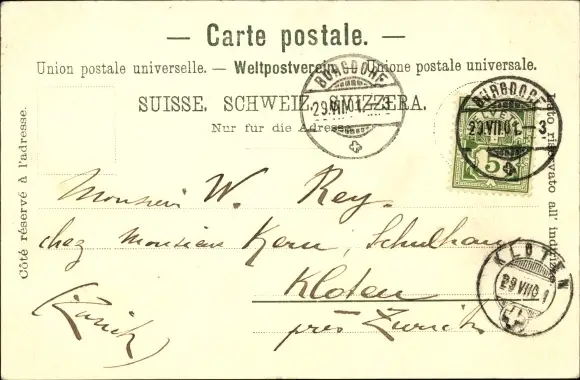 — Carte postale. —
Union postale universelle. — Weltpostverein — Unione postale universale.
SUISSE. SCHWEIZ. SVIZZERA.
Nur für die Adresse.
Côté réservé à l'adresse.
Lato riservato all' indirizzo.
BURGDORF
29.VII.01.–3
BURGDORF
29.VII.01.–3
HELVETIA
5
Monsieur W. Rey.
chez Monsieur Kern, Schulhaus
Kloten
près Zurich
(Zürich)
KLOTEN
29 VII 01